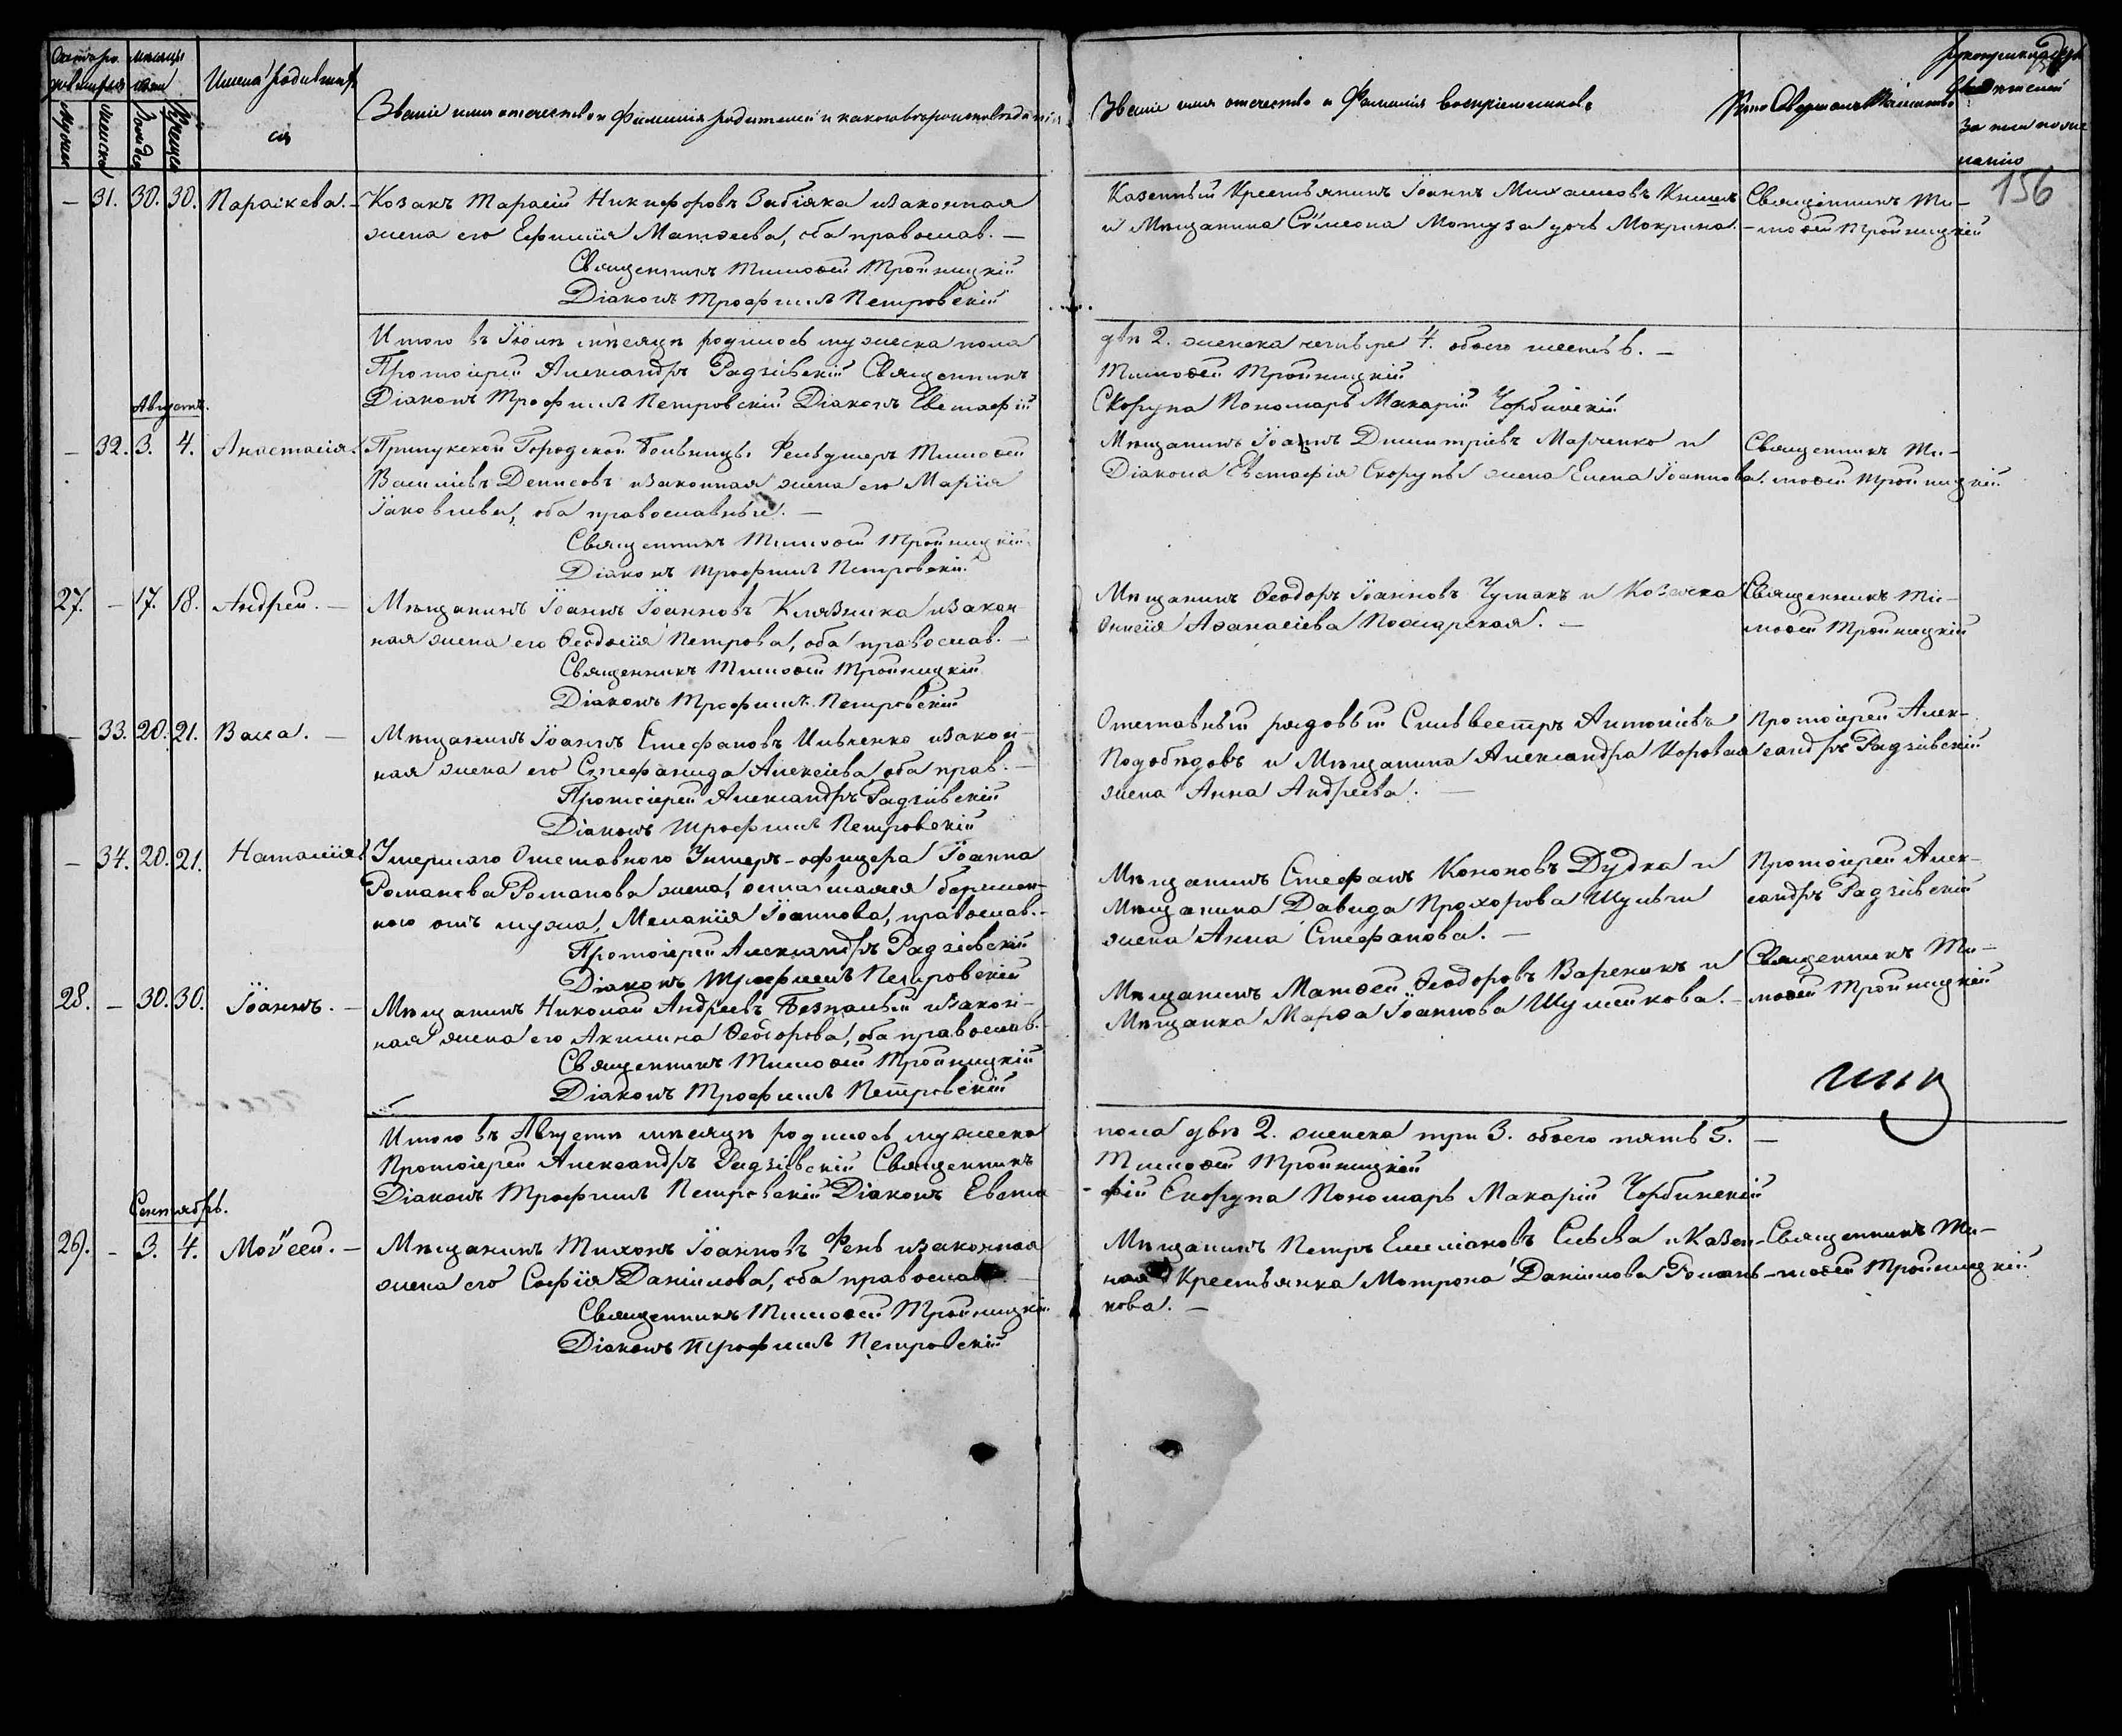 Счетъ ро- мѣсяцъ
дившихся и дни
Мужеска
Женска
Рожденія
Крещенія
Имена родивших
ся
Званіе имя отечество и фамилія родителей и какого вѣроисповѣданія
Званіе имя отечество и Фамилія воспріемниковъ
Кто Совершалъ Таинство
Рукоприкладство
свидетелей
за пись по же
ланію
156
— 31. 30. 30. Параскева. — Козакъ Тарасій Никифоровъ Забіяка и законная
жена его Ефимія Матвеева, оба православ. —
Священникъ Тимоѳей Тройницкій
Діаконъ Трофимъ Петровскій
Казенный Крестьянинъ Іоаннъ Михаиловъ
и Мѣщанина Сѵмеона Мотуза дочь Мокрина. —
Священникъ Ти-
моѳей Тройницкій
Итого въ Іюлѣ мѣсяцѣ родилось мужеска пола
два 2. женска четыре 4. обоего шесть 6. —
Протоіерей Александръ Радзіевскій Священникъ
Тимоѳей Тройницкій
Діаконъ Трофимъ Петровскій Діаконъ Евстафій
Скорупа Пономарь Макарій Чорбинскій
Августъ.
— 32. 3. 4. Анастасія. Прилукской Городской Больницы Фельдшеръ Тимоѳей
Василіевъ Денисовъ и законная жена его Марія
Іаковлева, оба православные. —
Священникъ Тимоѳей Тройницкій
Діаконъ Трофимъ Петровскій
Мѣщанинъ Іоаннъ Димитріевъ Марченко и
Діакона Евстафія Скорупы жена Елена Іоаннова.
Священникъ Ти-
моѳей Тройницкій
27. — 17. 18. Андрей. — Мѣщанинъ Іоаннъ Іоанновъ Клязника и закон-
ная жена его Ѳеодосія Петрова, оба православ. —
Священникъ Тимоѳей Тройницкій
Діаконъ Трофимъ Петровскій
Мѣщанинъ Ѳеодоръ Іоанновъ Чумакъ и Козачка
Онисія Аѳанасіева Пожарская. —
Священникъ Ти-
моѳей Тройницкій
— 33. 20. 21. Васса. — Мѣщанинъ Іоаннъ Стефановъ Ивченко и закон-
ная жена его Стефанида Алексіева, оба прав. —
Протоіерей Александръ Радзіевскій
Діаконъ Трофимъ Петровскій
Отставный рядовый Сильвестръ Антоніевъ
Подобѣдовъ и Мѣщанина Александра Коровая
жена Анна Андреева. —
Протоіерей Алек-
сандръ Радзіевскій
— 34. 20. 21. Наталія. Умершаго Отставного Унтеръ-офицера Іоанна
Романова Романова жена, оставшаяся беремен-
ною отъ мужа, Меланія Іоаннова, православ. —
Протоіерей Александръ Радзіевскій
Діаконъ Трофимъ Петровскій
Мѣщанинъ Стефанъ Кононовъ Дудка и
Мѣщанина Давида Прохорова Шульги
жена Анна Стефанова. —
Протоіерей Алек-
сандръ Радзіевскій
28. — 30. 30. Іоаннъ. — Мѣщанинъ Николай Андреевъ Безпалый и закон-
ная жена его Акилина Ѳеодорова, оба православ.
Священникъ Тимоѳей Тройницкій
Діаконъ Трофимъ Петровскій
Мѣщанинъ Матѳей Ѳеодоровъ Вареникъ и
Мѣщанка Марѳа Іоаннова Шулейкова. —
Священникъ Ти-
моѳей Тройницкій
Итого въ Августѣ мѣсяцѣ родилось мужеска
пола два 2. женска три 3. обоего пять 5. —
Протоіерей Александръ Радзіевскій Священникъ
Тимоѳей Тройницкій
Діаконъ Трофимъ Петровскій Діаконъ Евста
-фій Скорупа Пономарь Макарій Чорбинскій
Сентябрь.
29. — 3. 4. Моѵсей. — Мѣщанинъ Тихонъ Іоанновъ Фень и законная
жена его Софія Даніилова, оба православ. —
Священникъ Тимоѳей Тройницкій
Діаконъ Трофимъ Петровскій
Мѣщанинъ Петръ Емиліановъ и Казен-
ная Крестьянка Мотрона Даніилова Романь-
кова. —
Священникъ Ти-
моѳей Тройницкій